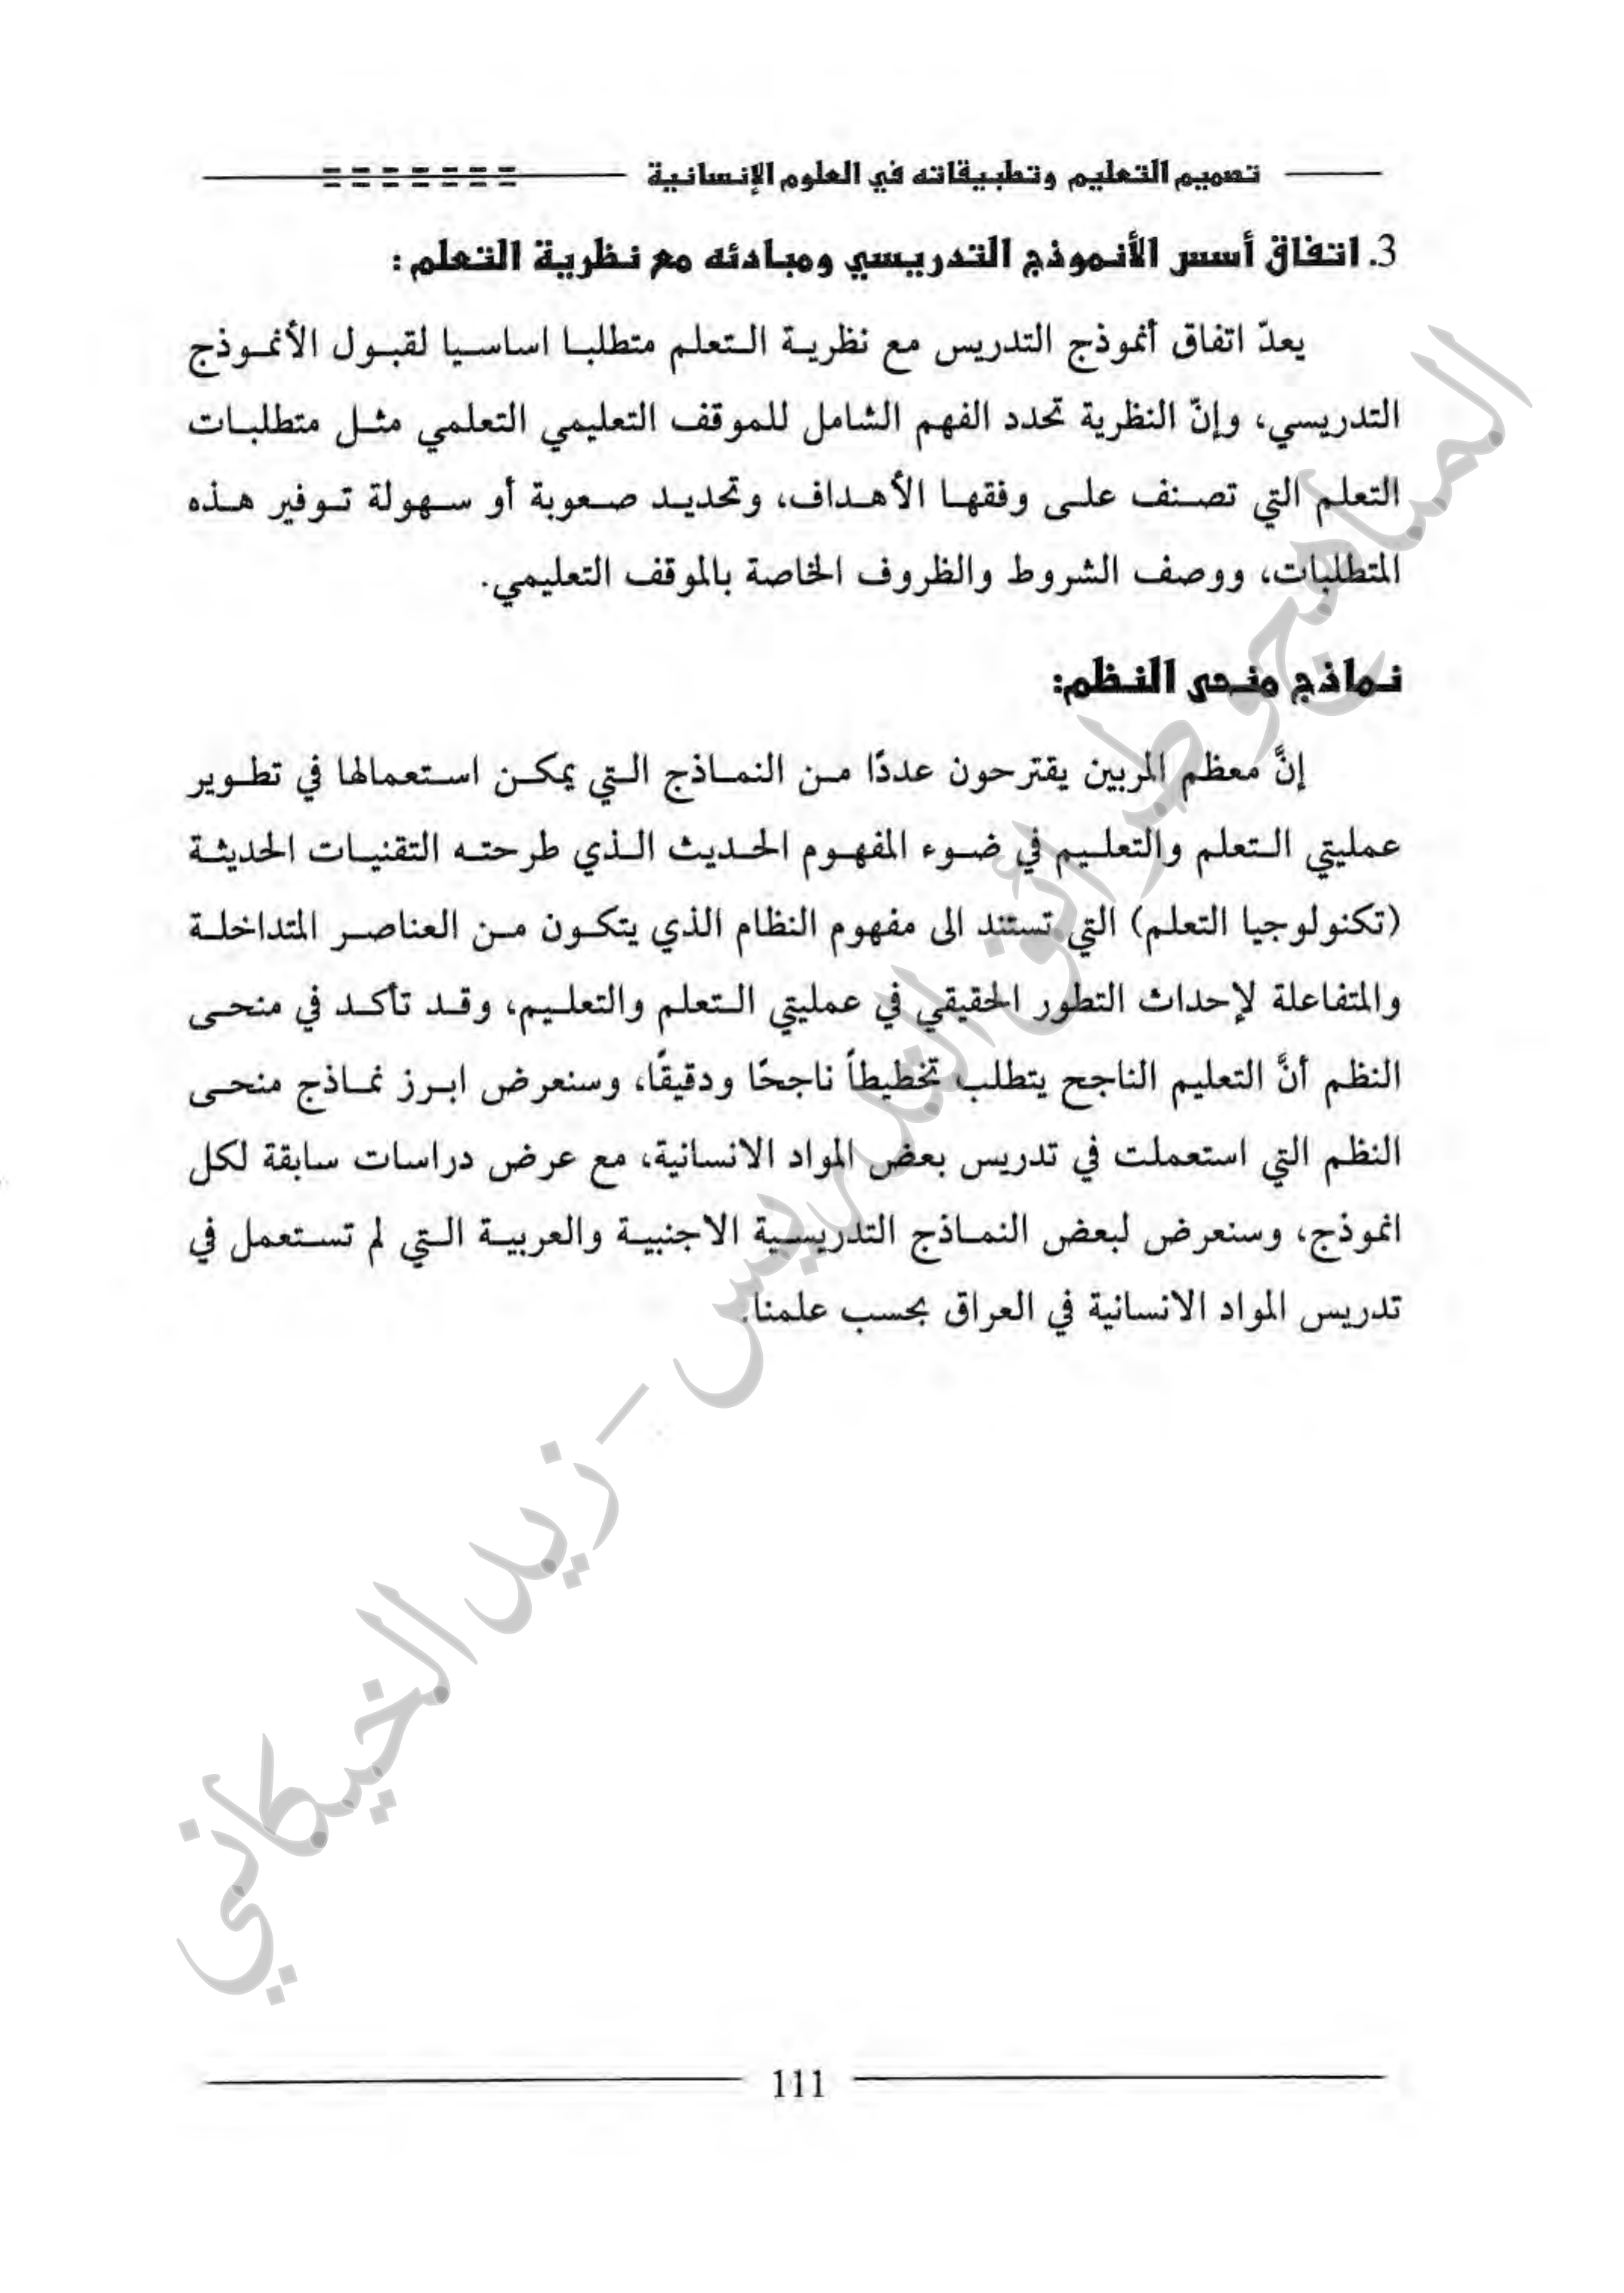 تصميم التعليم وتطبيقاته في العلوم الإنسانية
3. اتفاق أسس الأنموذج التدريسي ومبادئه مع نظرية التعلم :
يعدّ اتفاق أنموذج التدريس مع نظرية التعلم متطلبا اساسيا لقبول الأنموذج
التدريسي، وإنّ النظرية تحدد الفهم الشامل للموقف التعليمي التعلمي مثل متطلبات
التعلم التي تصنف على وفقها الأهداف، وتحديد صعوبة أو سهولة توفير هذه
المتطلبات، ووصف الشروط والظروف الخاصة بالموقف التعليمي.
نماذج منحى النظم:
إنَّ معظم المربين يقترحون عددًا من النماذج التي يمكن استعمالها في تطوير
عمليتي التعلم والتعليم في ضوء المفهوم الحديث الذي طرحته التقنيات الحديثة
(تكنولوجيا التعلم) التي تستند الى مفهوم النظام الذي يتكون من العناصر المتداخلة
والمتفاعلة لإحداث التطور الحقيقي في عمليتي التعلم والتعليم، وقد تأكد في منحى
النظم أنَّ التعليم الناجح يتطلب تخطيطاً ناجحًا ودقيقًا، وسنعرض ابرز نماذج منحى
النظم التي استعملت في تدريس بعض المواد الانسانية، مع عرض دراسات سابقة لكل
انموذج، وسنعرض لبعض النماذج التدريسية الاجنبية والعربية التي لم تستعمل في
تدريس المواد الانسانية في العراق بحسب علمنا.
المناهج وطرائق التدريس - زيد الخيكاني
111